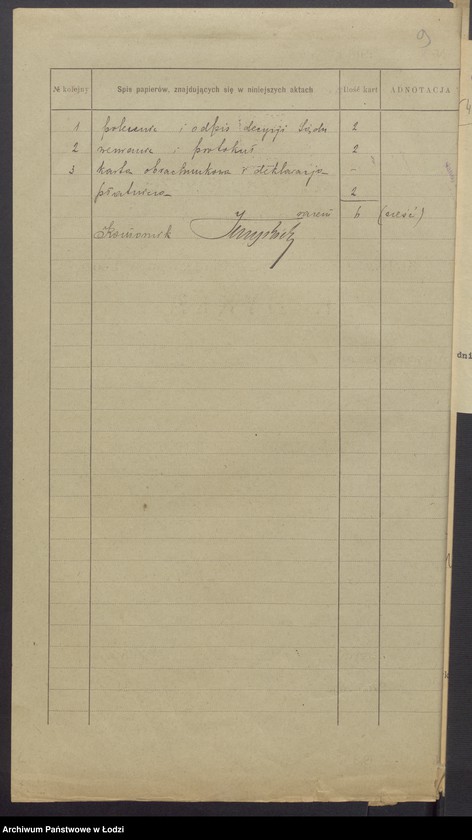 9
№ kolejny Spis papierów, znajdujących się w niniejszych aktach Ilość kart ADNOTACJA
1 polecenie i odpis decyzji Sądu 2
2 wezwania i protokuł 2
3 karta obrachunkowa i deklaracja –
płatnicza 2
razem 6 (sześć)
Komornik
dni
Archiwum Państwowe w Łodzi